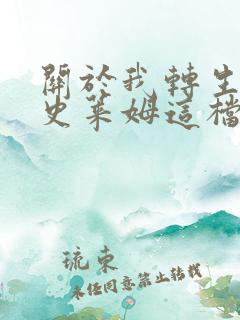 關於我轉生
史萊姆這檔
琉束
未經同意禁止轉載